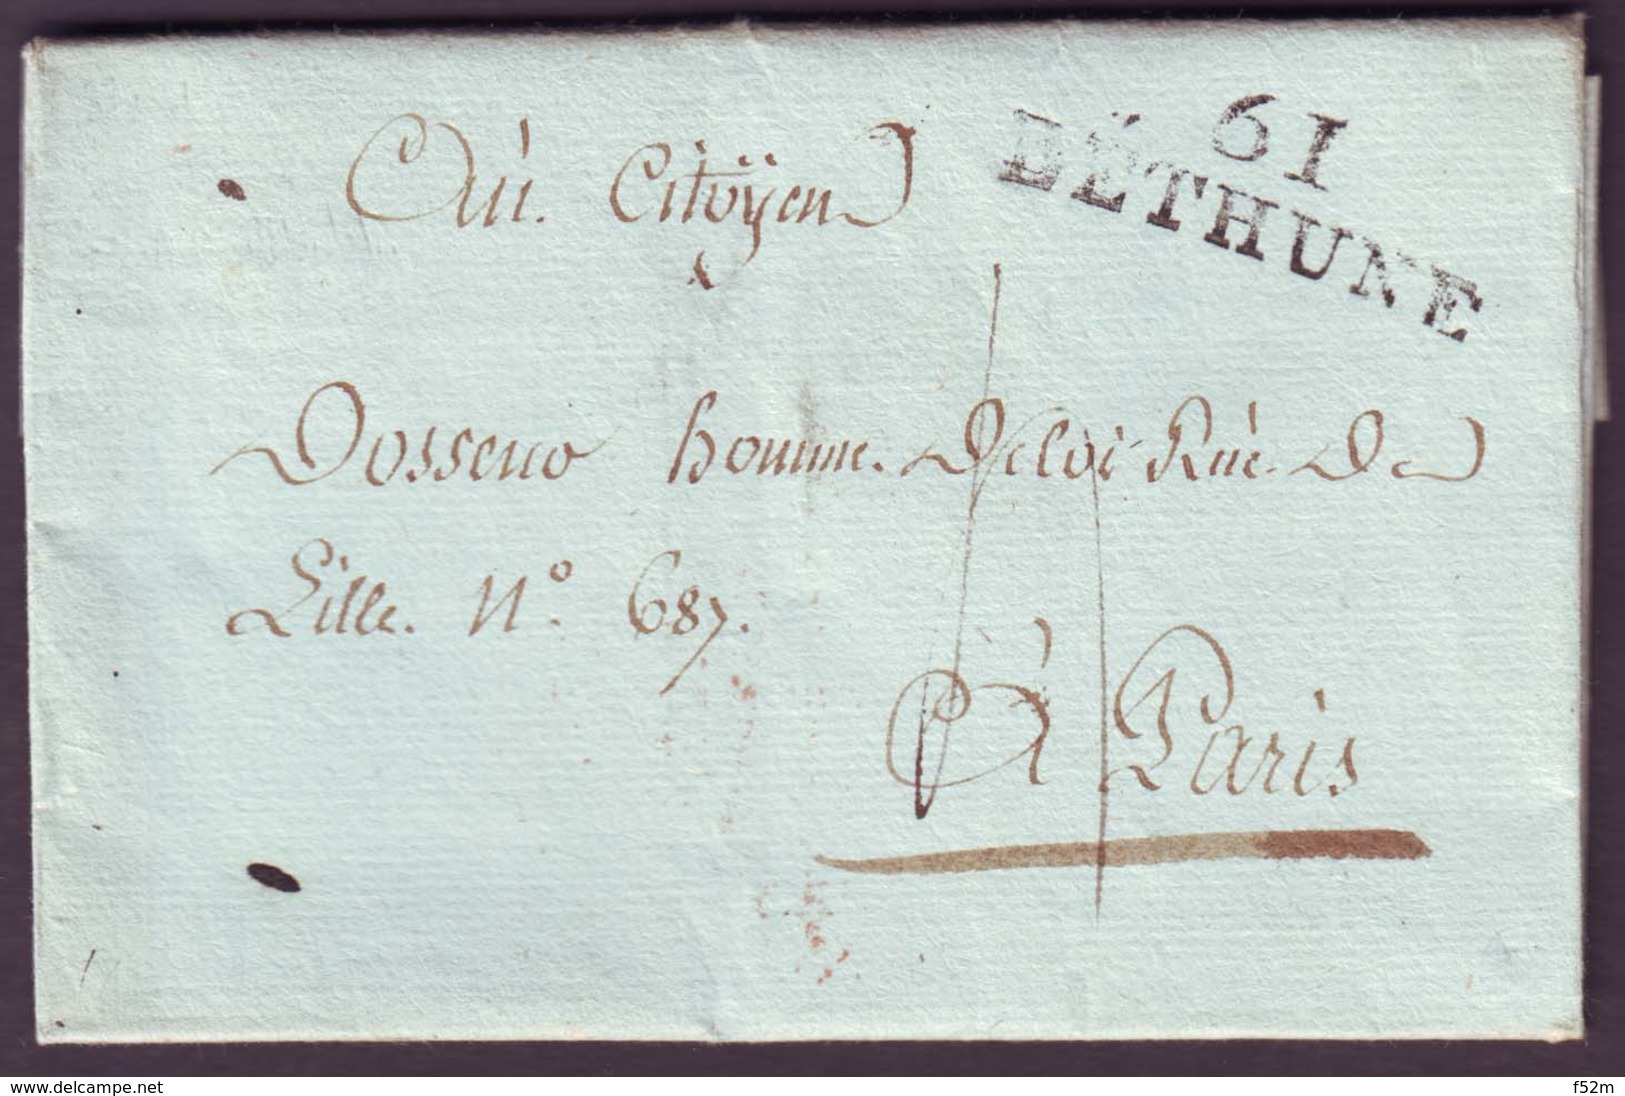 61
BÉTHUNE
Au Citoÿen
Dosseno homme De loi Rüe De
Lille. N.º 687.
À Paris
www.delcampe.net
f52m